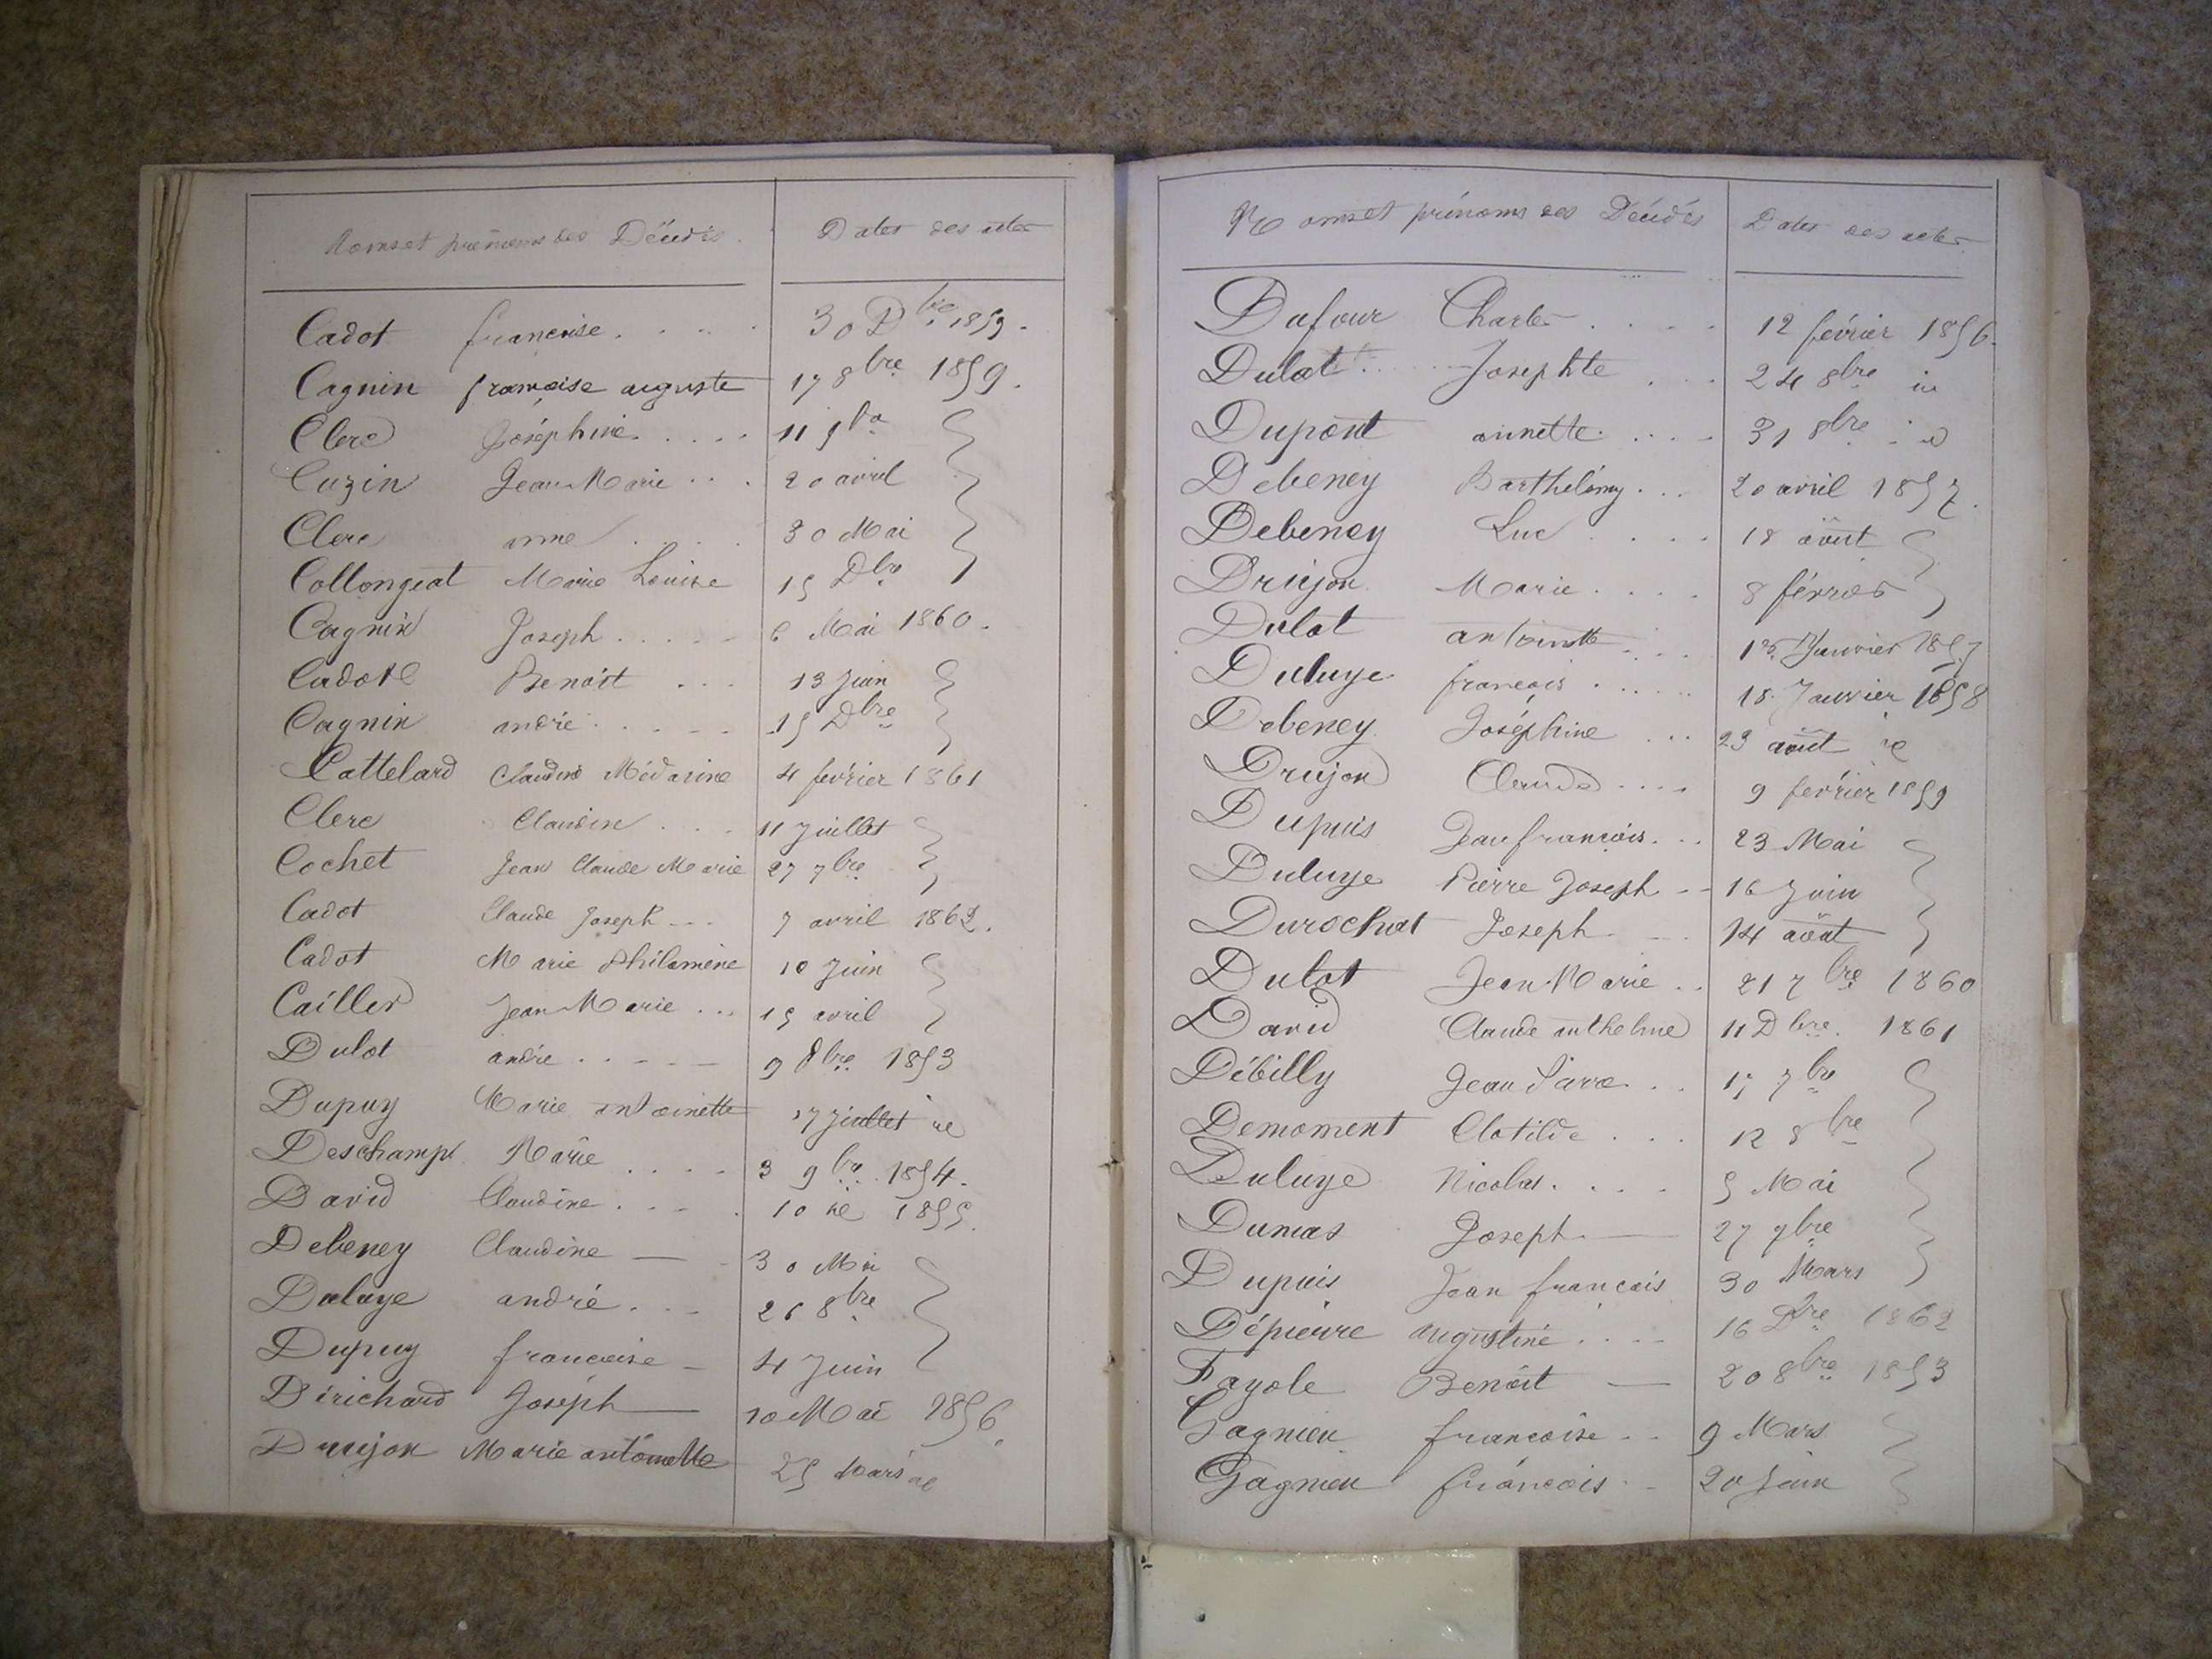 Noms et prénoms des Décédés Dates des actes
Cadot françoise 30 Dbre 1859.
Cagnin françoise auguste 17 8bre 1859.
Clerc Joséphine 11 9bre
Cuzin Jean Marie 20 avril
Clerc anne 30 Mai
Collongeat Marie Louise 15 Dbre
Cagnin Joseph 6 Mai 1860.
Cadot Benoit 13 Juin
Cagnin andré 15 Dbre
Cattelard Claudine 4 février 1861
Clerc Claudine 11 Juillet
Cochet Jean Claude Marie 27 7bre
Cadot Claude Joseph 7 avril 1862.
Cadot Marie Philomène 10 Juin
Cailler Jean Marie 15 avril
Dulot andré 9 8bre 1853
Dupuy Marie antoinette 17 juillet id
Deschamps Marie 3 9bre 1854.
David Claudine 10 id 1855.
Debeney Claudine 30 Mai
Duluye andré 26 8bre
Dupuy françoise 4 Juin
Dirichard Joseph 10 Mai 1856.
Drujon Marie antoinette 25 Mars id
Noms et prénoms des Décédés Dates des actes
Dufour Charles 12 février 1856.
Dulot Josephte 24 8bre id
Dupont annette 31 8bre id
Debeney Barthélémy 20 avril 1857.
Debeney Luc 18 août
Drujon Marie 8 février
Dulot antoinette 1er Janvier 1857
Duluye françois 18 Janvier 1858
Debeney Joséphine 23 août id
Drujon Claude 9 février 1859
Dupuis Jean françois 23 Mai
Duluye Pierre Joseph 16 Juin
Durochat Joseph 14 août
Dulot Jean Marie 21 7bre 1860
David Claude anthelme 11 Dbre 1861
Débilly Jean Pierre 17 7bre
Demoment Clotilde 12 8bre
Duluye Nicolas 5 Mai
Dumas Joseph 27 9bre
Dupuis Jean françois 30 Mars
Dépierre augustine 16 Dbre 1862
Fayole Benoît 20 8bre 1853
Gagnieu françoise 9 Mars
Gagnieu françois 20 Juin